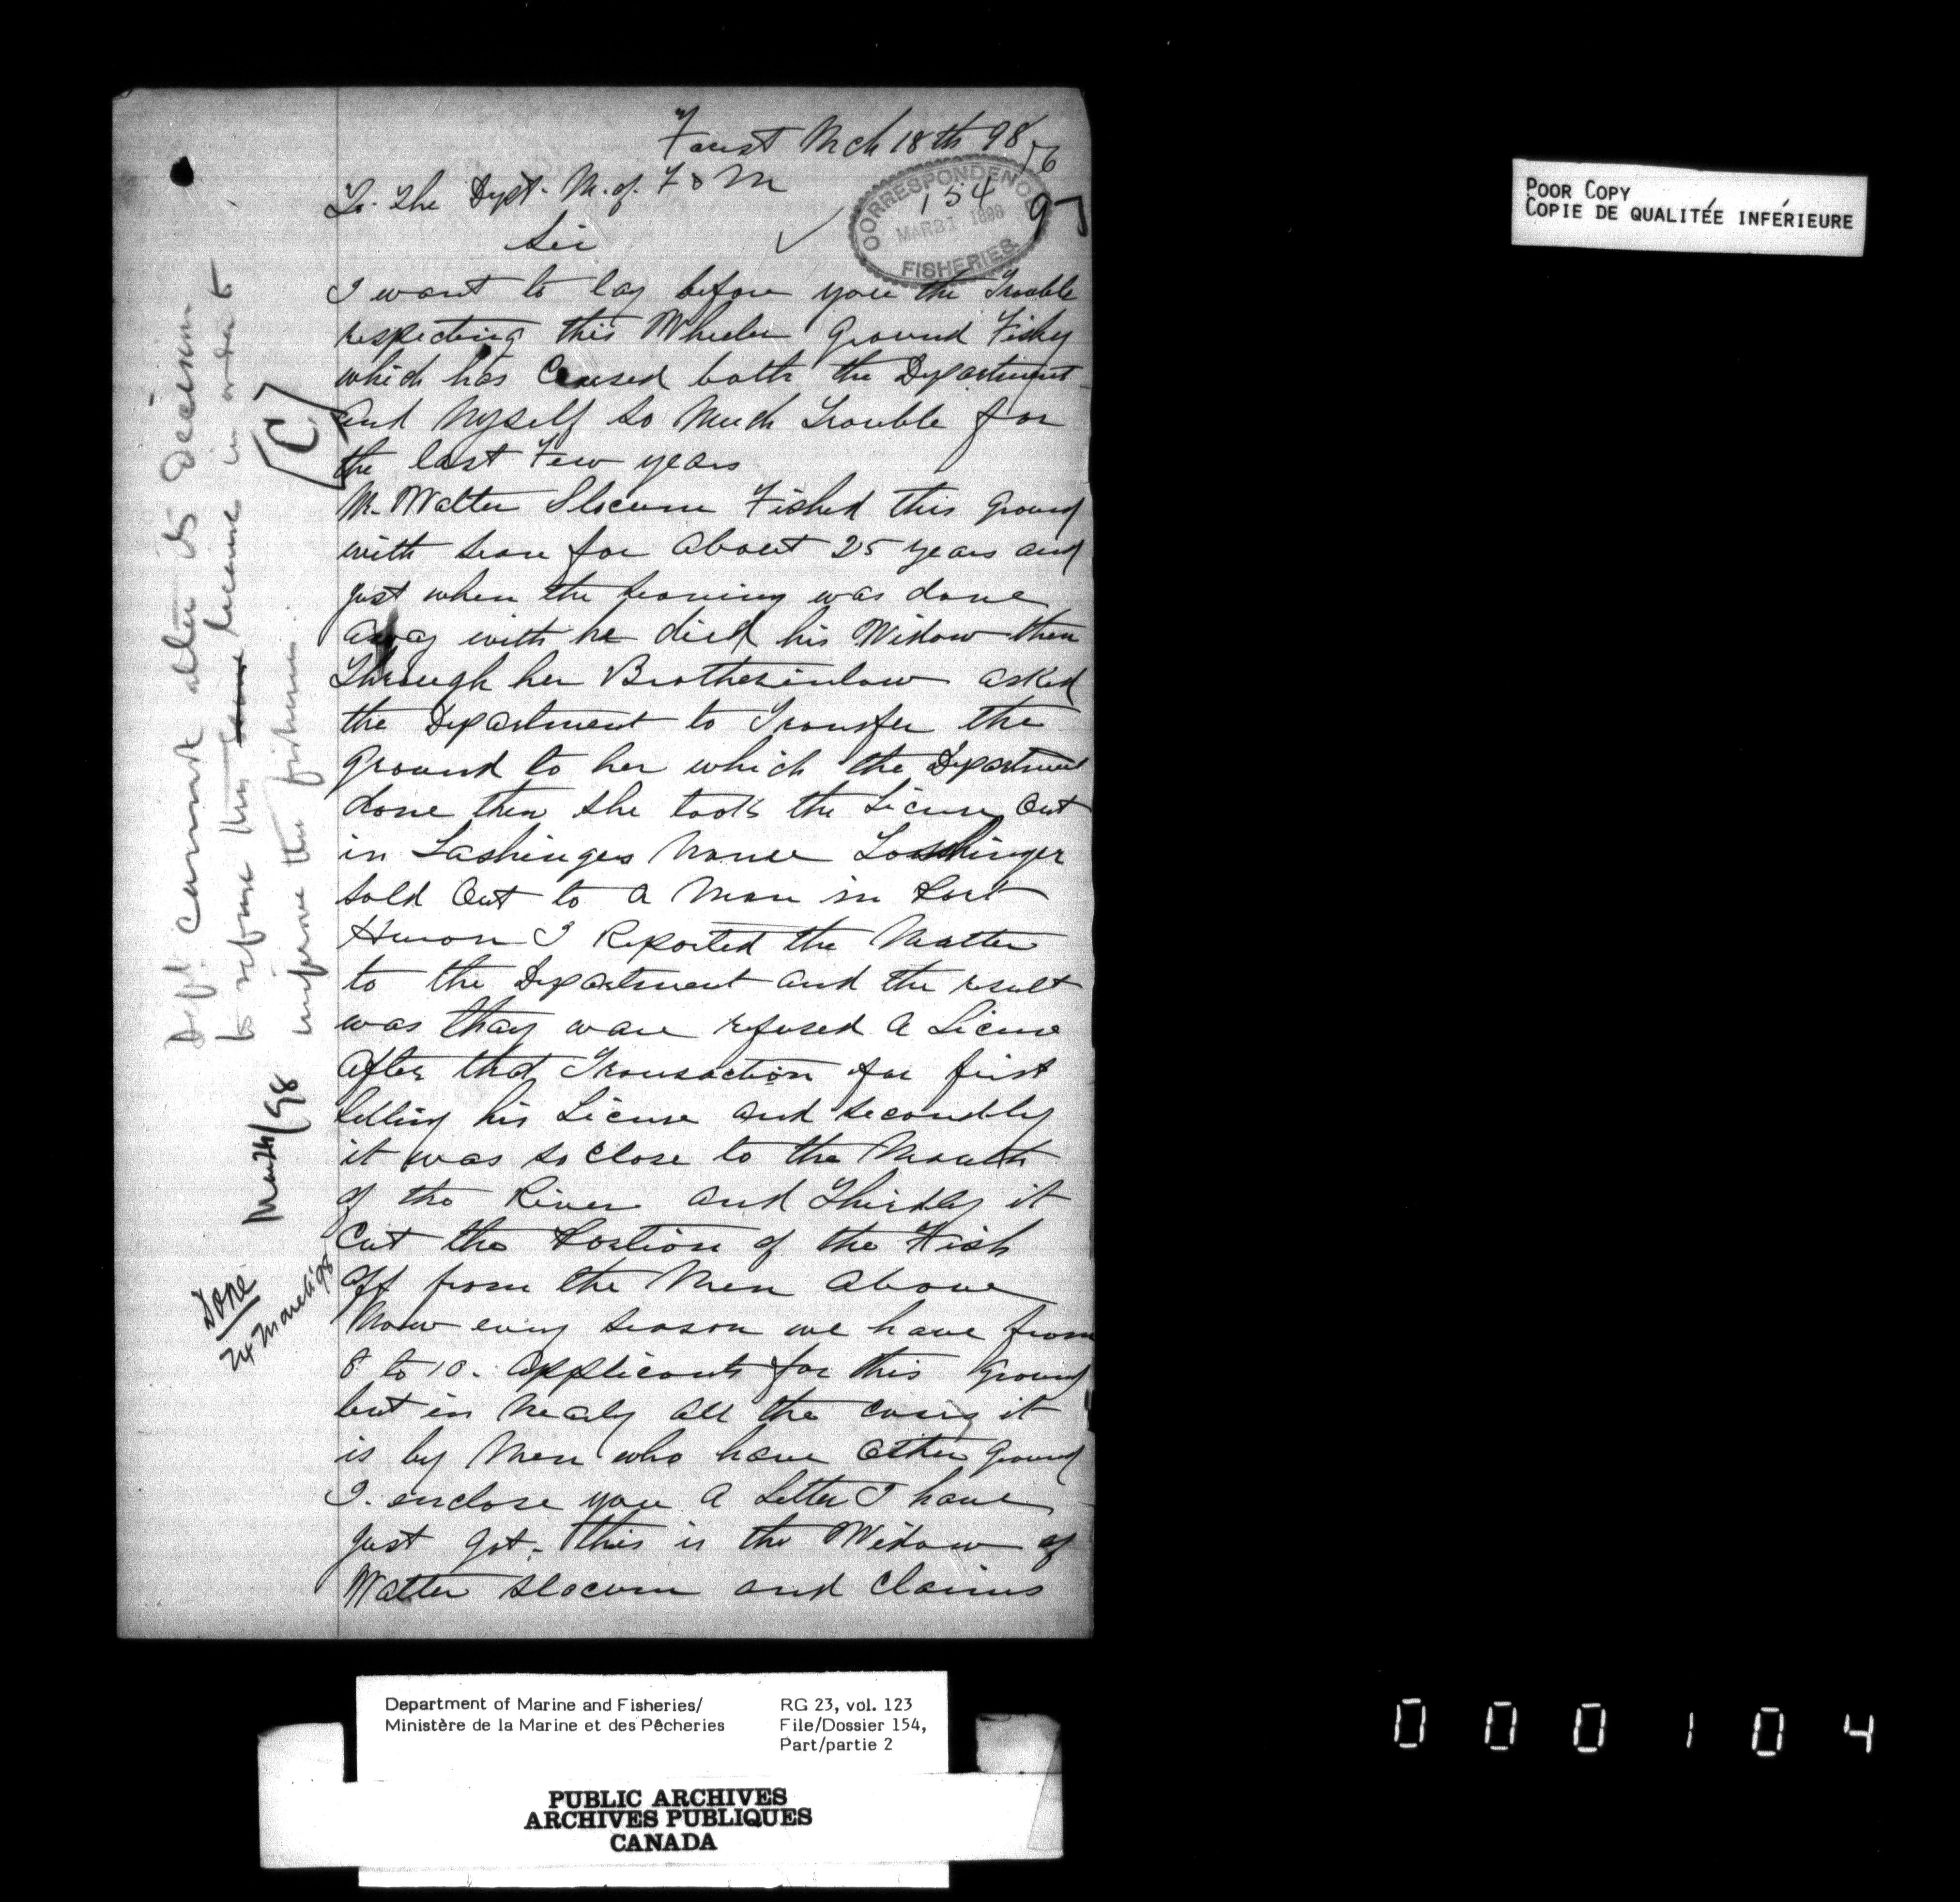 Forest Mch 18th 98
To. The Dept. M. of. F & M
Sir
CORRESPONDENCE
154
MAR 21 1898
FISHERIES.
I want to lay before you the Trouble
respecting this Wheeler Ground Fishy
which has Caused both the Department
and Myself so Much Trouble for
the last Few years
Mr. Walter Slocum Fished this Ground
with sean for About 25 years and
just when the seaning was done
away with he died his Widow then
Through her Brotherinlaw asked
the Department to Transfer the
ground to her which the Department
done then she took the License Out
in Lashingers Name Loushinger
sold Out to a Man in Port
Huron I Reported the Matter
to the Department and the result
was thay ware refused a License
after that Transaction for first
selling his License and secondly
it was so close to the Mouth
of the River and Thirdly it
Cut the Portion of the Fish
off from the Men Above
Now every season we have from
8 to 10. Applicants for this Ground
but in Nearly all the cases it
is by Men who have Other Ground
I. enclose you a Letter I have
just got. this is the Widow of
Walter Slocum and Claims
Dept. cannot alter its decision
to refuse this licence in order to
improve the fisheries.
[C]
Mar 24/98
Done
24 March '98
POOR COPY
COPIE DE QUALITÉE INFÉRIEURE
Department of Marine and Fisheries/
Ministère de la Marine et des Pêcheries
RG 23, vol. 123
File/Dossier 154,
Part/partie 2
PUBLIC ARCHIVES
ARCHIVES PUBLIQUES
CANADA
000104